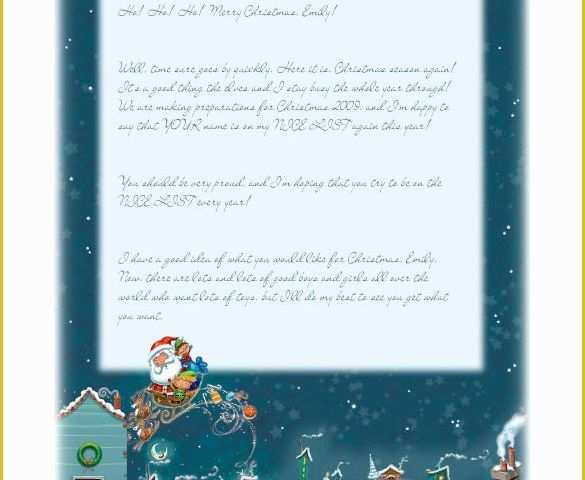 Ho! Ho! Ho! Merry Christmas, Emily!
Well, time sure goes by quickly. Here it is, Christmas season again!
It's a good thing the elves and I stay busy the whole year through!
We are making preparations for Christmas 2009, and I'm happy to
say that YOUR name is on my NICE LIST again this year!
You should be very proud, and I'm hoping that you try to be on the
NICE LIST every year!
I have a good idea of what you would like for Christmas, Emily.
Now, there are lots and lots of good boys and girls all over the
world who want lots of toys, but I'll do my best to see you get what
you want.